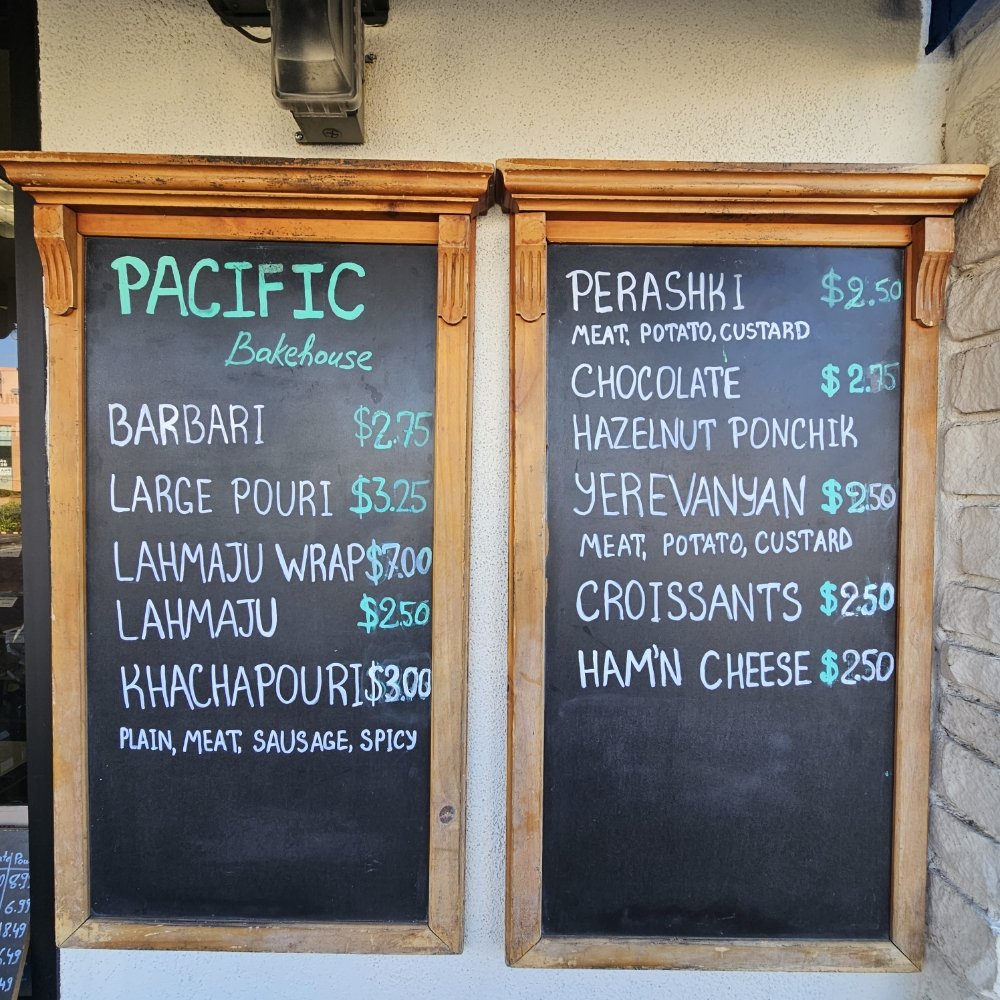 PACIFIC
Bakehouse
BARBARI $2.75
LARGE POURI $3.25
LAHMAJU WRAP $7.00
LAHMAJU $2.50
KHACHAPOURI $3.00
PLAIN, MEAT, SAUSAGE, SPICY
PERASHKI $2.50
MEAT, POTATO, CUSTARD
CHOCOLATE $2.75
HAZELNUT PONCHIK
YEREVANYAN $2.50
MEAT, POTATO, CUSTARD
CROISSANTS $2.50
HAM'N CHEESE $2.50
6.99
8.49